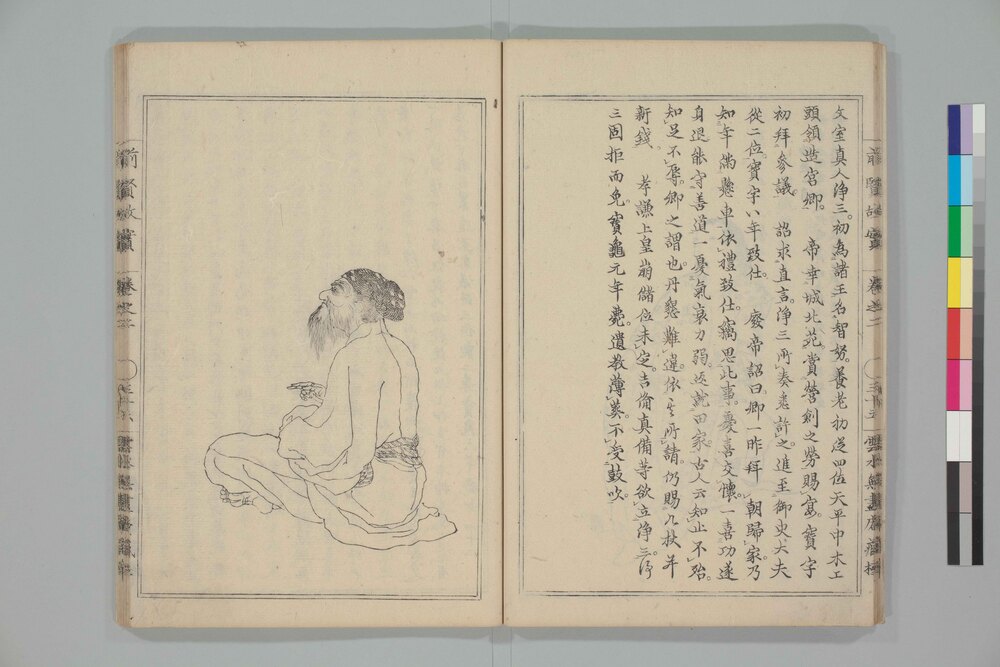 文室真人浄三。初為諸王名智努。養老初従四位天平中木工
頭領造宮卿。　帝幸城北苑。賞營創之勞賜宴。寶字
初拜參議。　詔求直言。浄三所奏悉許之進至御史大夫
從二位。寶字八年致仕　廢帝詔曰卿一昨拜　朝歸家乃
知年滿懸車依禮致仕竊思此事。憂喜交懷。一喜功遂
身退能守善道一憂氣衰力弱。返就田家古人云知止不殆。
知足不辱。卿之謂也。丹懇難違依所請仍賜几杖并
新錢　孝謙上皇崩儲位未定吉備真備等欲立浄三浄
三固拒而免。寶龜元年薨。遺教薄葬。不受鼓吹。
前賢故實　卷之二
三十五
前賢故實　卷之二
三十六